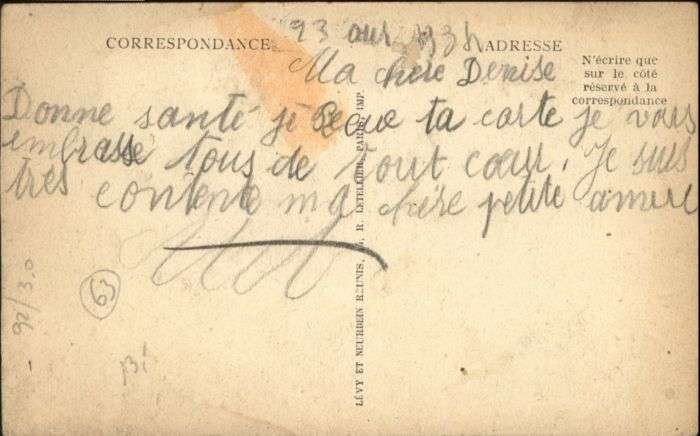 CORRESPONDANCE
ADRESSE
N'écrire que
sur le côté
réservé à la
correspondance
Ma chère Denise
Donne santé je ta carte je vous
embrasse tous de tout cœur. Je suis
très contente ma chère petite
LÉVY ET NEURDEIN RÉUNIS, 44, R. LETELLIER, PARIS. IMP.
63
92/3.0